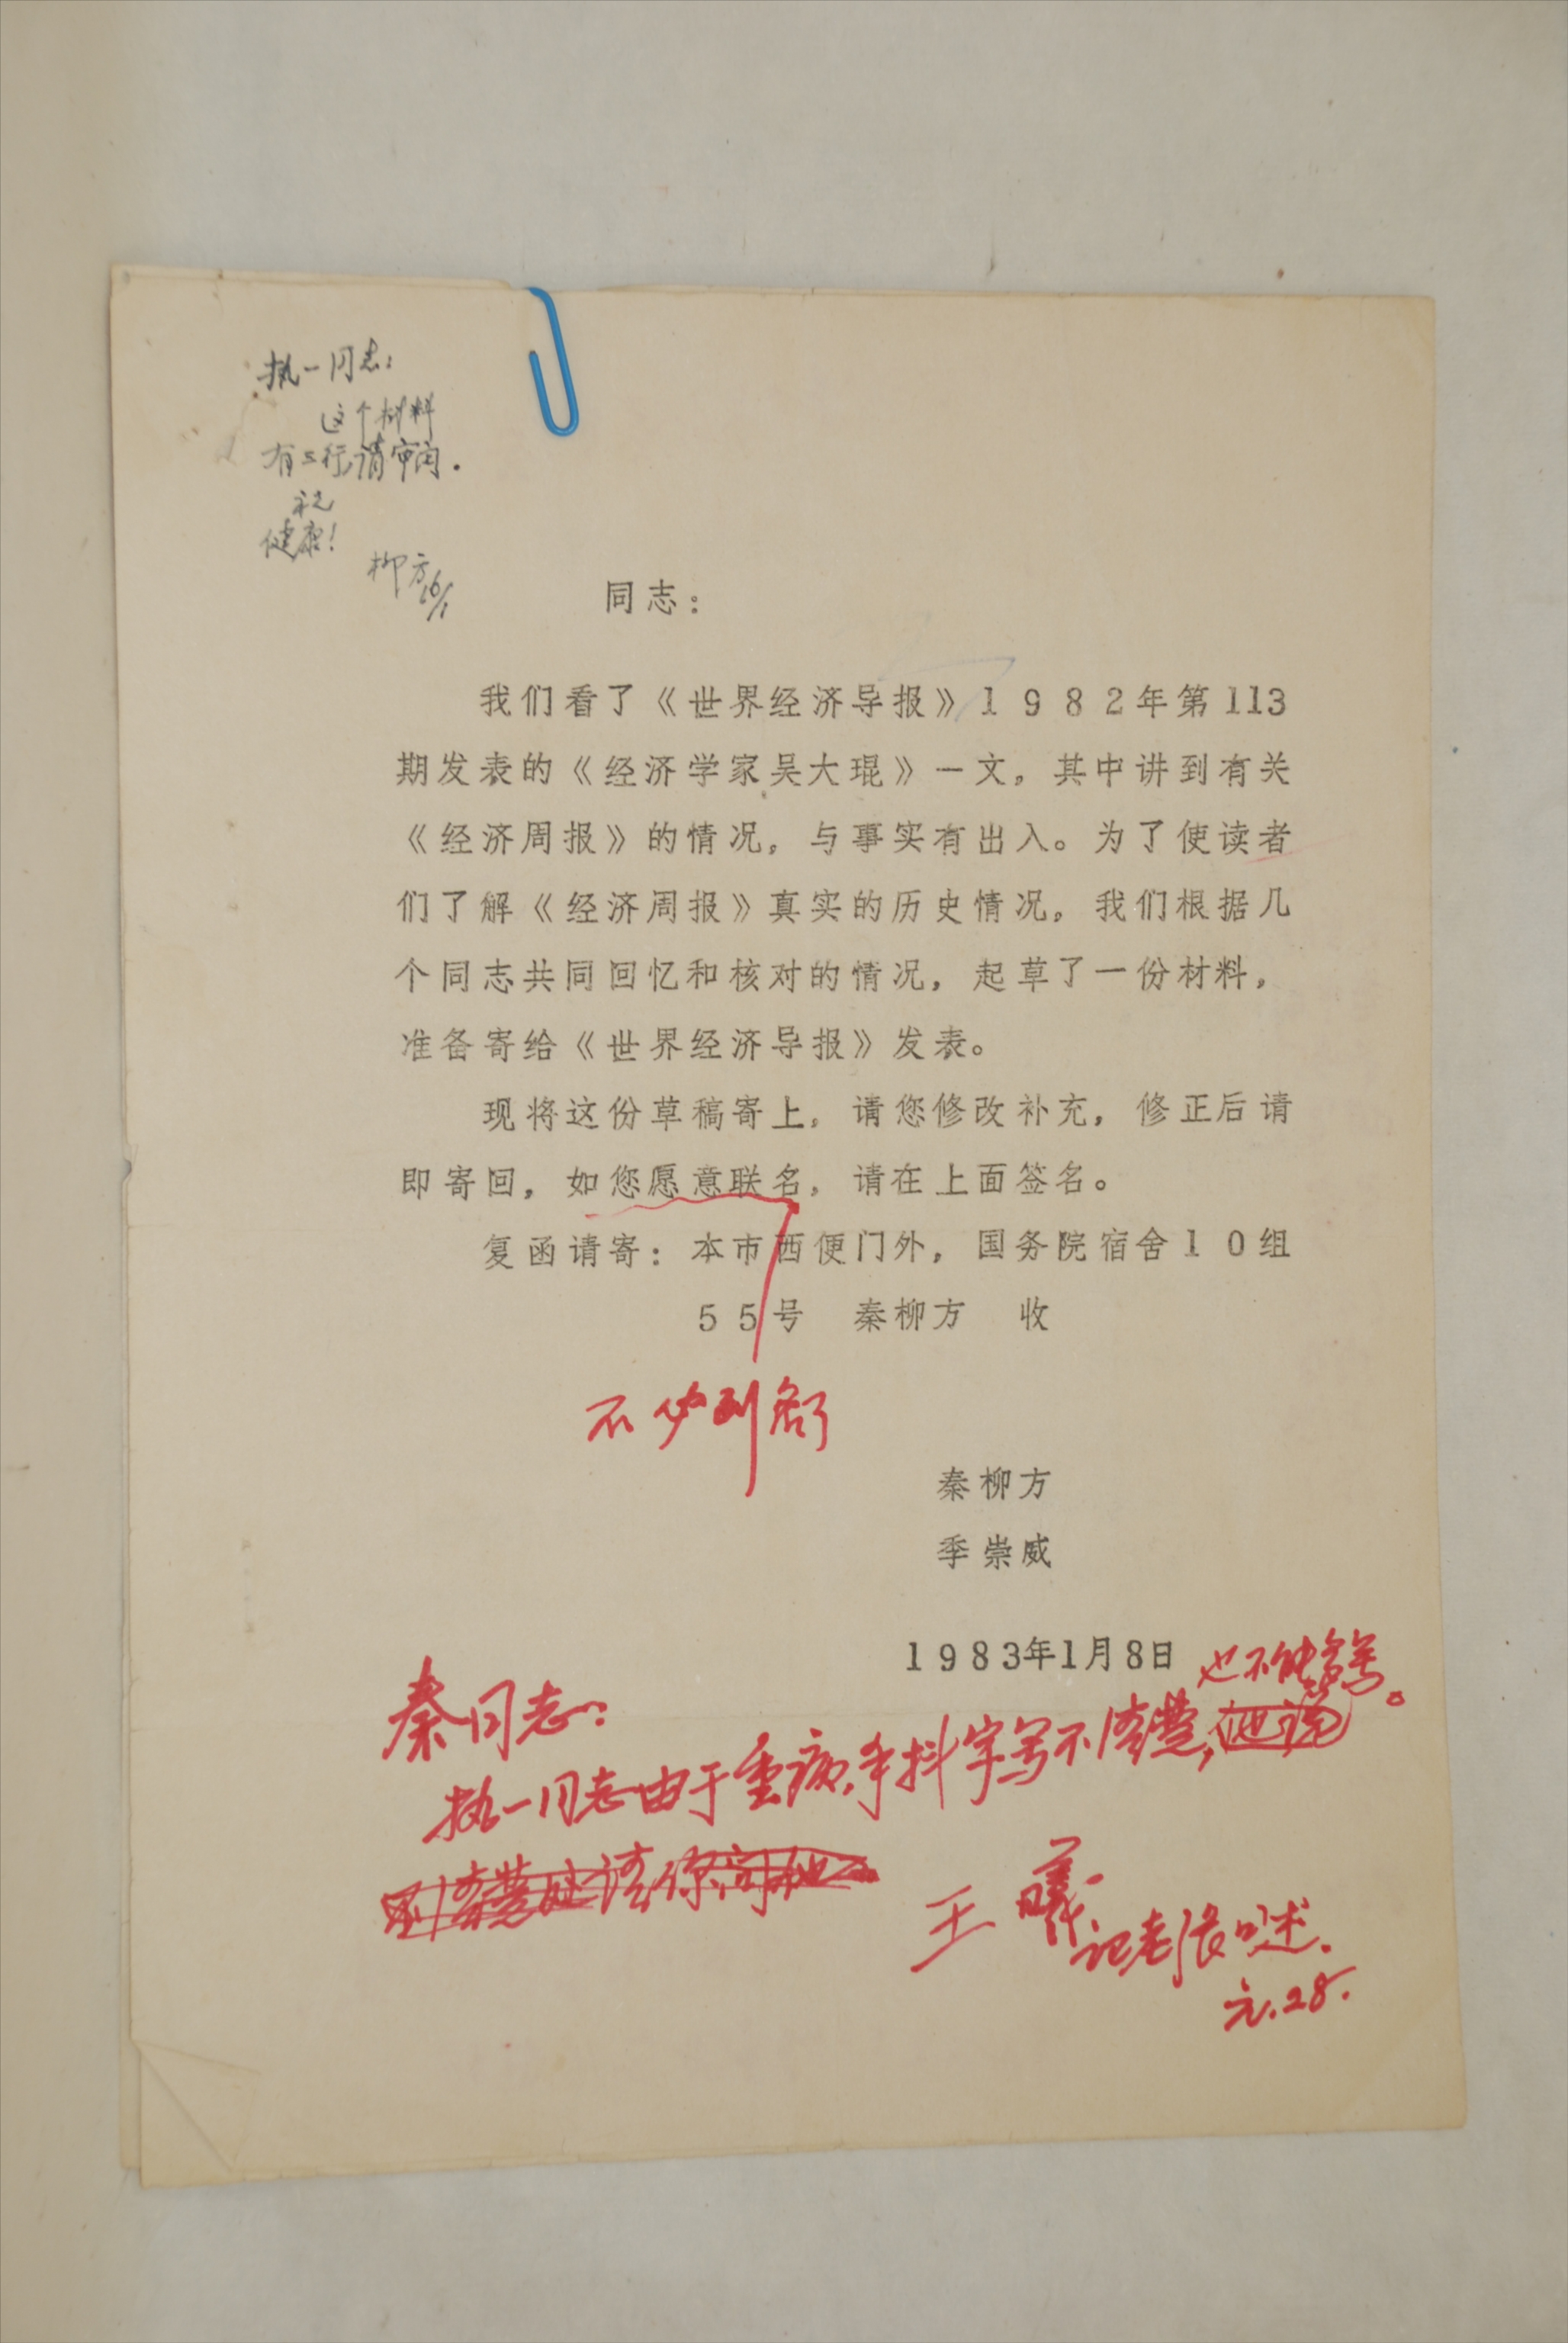 执一同志：
这个材料
有三行，请审阅．
祝
健康！
柳方16/1
同志：
我们看了《世界经济导报》1982年第113
期发表的《经济学家吴大琨》一文，其中讲到有关
《经济周报》的情况，与事实有出入。为了使读者
们了解《经济周报》真实的历史情况，我们根据几
个同志共同回忆和核对的情况，起草了一份材料，
准备寄给《世界经济导报》发表。
现将这份草稿寄上，请您修改补充，修正后请
即寄回，如您愿意联名，请在上面签名。
复函请寄：本市西便门外，国务院宿舍10组
55号 秦柳方 收
不必列名了
秦柳方
季崇威
1983年1月8日
秦同志：
也不能多写。
执一同志由于重病，手抖字写不清楚，
王曦
记老张口述．
元.28.